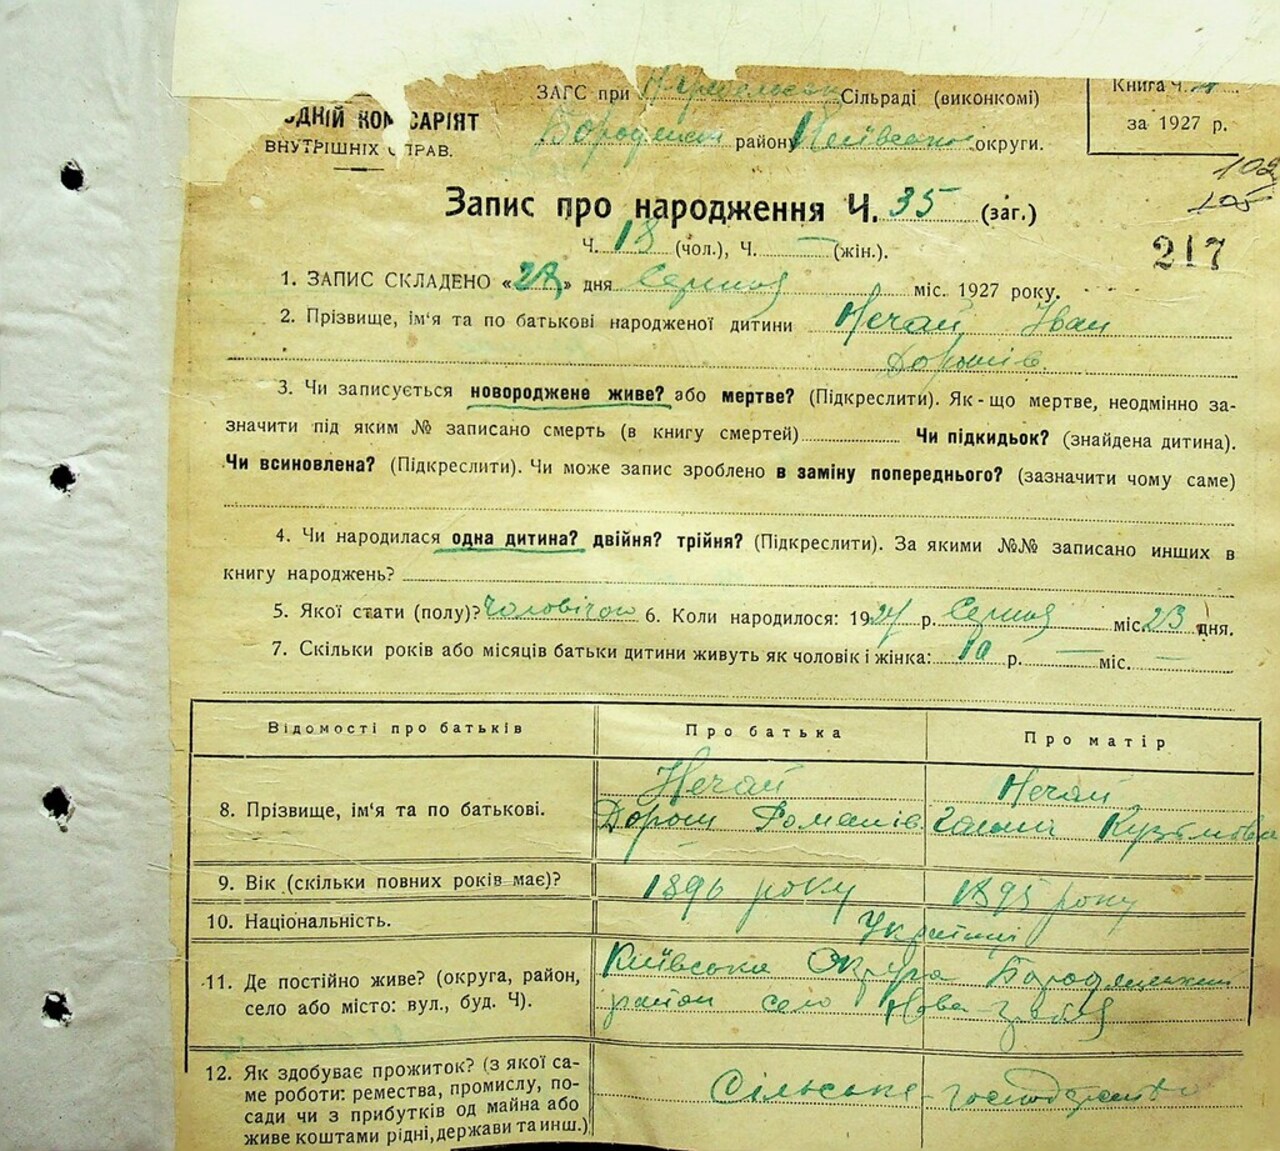 ЗАГС при Сільраді (виконкомі)
Книга Ч.
ОДНІЙ КОМ САРІЯТ
ВНУТРІШНІХ СПРАВ.
району Київської округи.
за 1927 р.
102
105
Запис про народження Ч. 35 (заг.)
Ч. 18 (чол.), Ч. — (жін.).
217
1. ЗАПИС СКЛАДЕНО « » дня Серпня міс. 1927 року.
2. Прізвище, ім'я та по батькові народженої дитини Нечай Іван
Дорошів.
3. Чи записується новороджене живе? або мертве? (Підкреслити). Як-що мертве, неодмінно за-
значити під яким № записано смерть (в книгу смертей) Чи підкидьок? (знайдена дитина).
Чи всиновлена? (Підкреслити). Чи може запис зроблено в заміну попереднього? (зазначити чому саме)
4. Чи народилася одна дитина? двійня? трійня? (Підкреслити). За якими №№ записано инших в
книгу народжень?
5. Якої стати (полу)? чоловічої 6. Коли народилося: 1927 р. Серпня міс. 23 дня.
7. Скільки років або місяців батьки дитини живуть як чоловік і жінка: 10 р. — міс. —
Відомості про батьків Про батька Про матір
Нечай Нечай
8. Прізвище, ім'я та по батькові. Дорош Романів Ганна Кузьмова
9. Вік (скільки повних років має)? 1896 року 1895 року
10. Національність. Українці
11. Де постійно живе? (округа, район, Київська Округа Бородянський
село або місто: вул., буд. Ч). район село Нова-Гребля
12. Як здобуває прожиток? (з якої са-
ме роботи: ремества, промислу, по- Сільське-господарство
сади чи з прибутків од майна або
живе коштами рідні, держави та инш.)